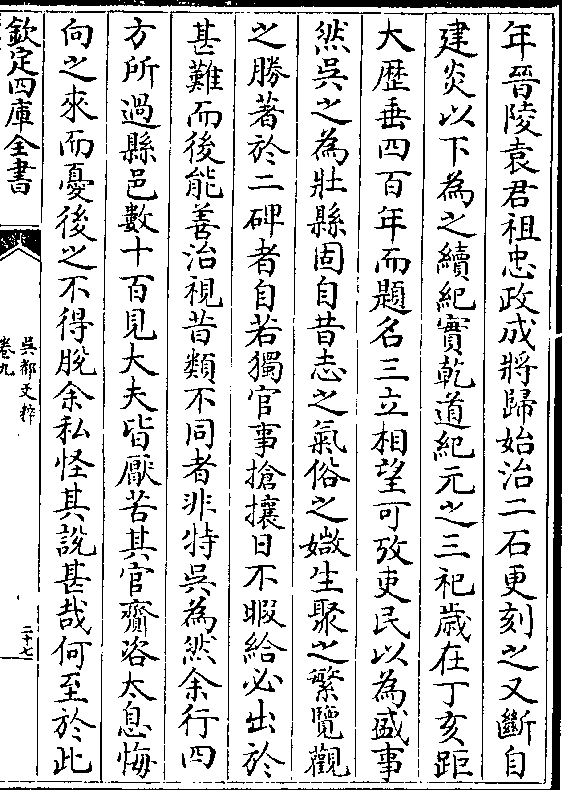 年晉陵袁君祖忠政成將歸始治二石更刻之又斷自
建炎以下為之續紀實乾道紀元之三祀歳在丁亥距
大歴垂四百年而題名三立相望可攷吏民以為盛事
然吳之為壯縣固自昔志之氣俗之媺生聚之繁覽觀
之勝著於二碑者自若獨官事搶攘日不暇給必出於
甚難而後能善治視昔類不同者非特吳為然余行四
方所過縣邑數十百見大夫皆厭苦其官齎咨太息悔
向之來而憂後之不得脫余私怪其說甚哉何至於此
欽定四庫全書
吳都文粹
卷九
二十七